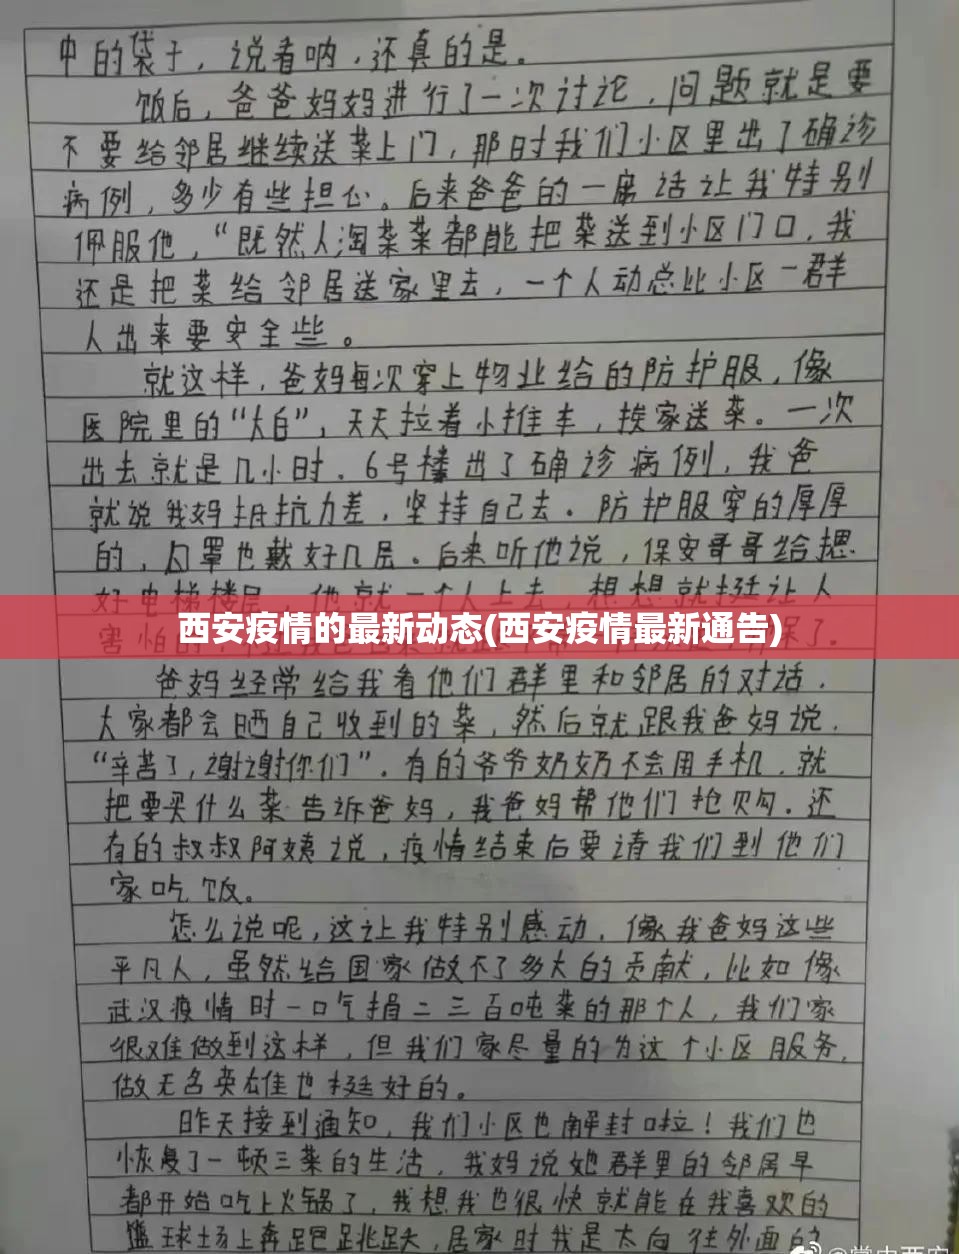 中的袋子，说着呐，还真的是。
饭后，爸爸妈妈进行了一次讨论，问题就是要
不要给邻居继续送菜上门，那时我们小区里出了确诊
病例，多少有些担心。后来爸爸的一席话让我特别
佩服他，“既然人淘菜菜都能把菜送到小区门口，我
还是把菜给邻居送家里去，一个人动总比小区一群
人出来要安全些。
就这样，爸妈每次穿上物业给的防护服，像
医院里的“大白”，天天拉着小推车，挨家送菜。一次
出去就是几小时。6号楼出了确诊病例，我爸
就说我妈抵抗力差，坚持自己去。防护服穿的厚厚
的，口罩也戴好几层。后来听他说，保安哥哥给摁
好电梯楼层，他就一个人上去，想想就挺让人
害怕的
西安疫情的最新动态(西安疫情最新通告)
了。
爸妈经常给我看他们群里和邻居的对话，
大家都会晒自己收到的菜，然后就跟我爸妈说，
“辛苦了，谢谢你们”。有的爷爷奶奶不会用手机，就
把要买什么菜告诉爸妈，我爸妈帮他们抢购。还
有的叔叔阿姨说，疫情结束后要请我们到他们
家吃饭。
怎么说呢，这让我特别感动，像我爸妈这些
平凡人，虽然给国家做不了多大的贡献，比如像
武汉疫情时一口气捐二三百吨菜的那个人，我们家
很难做到这样，但我们家尽量的为这个小区服务，
做无名英雄也挺好的。
昨天接到通知，我们小区也解封啦！我们也
恢复了一顿三菜的生活，我妈说她群里的邻居早
都开始吃上火锅了，我想我也很快就能在我喜欢的
篮球场上奔跑跳跃，居家时我是太向往外面的
@掌中西安